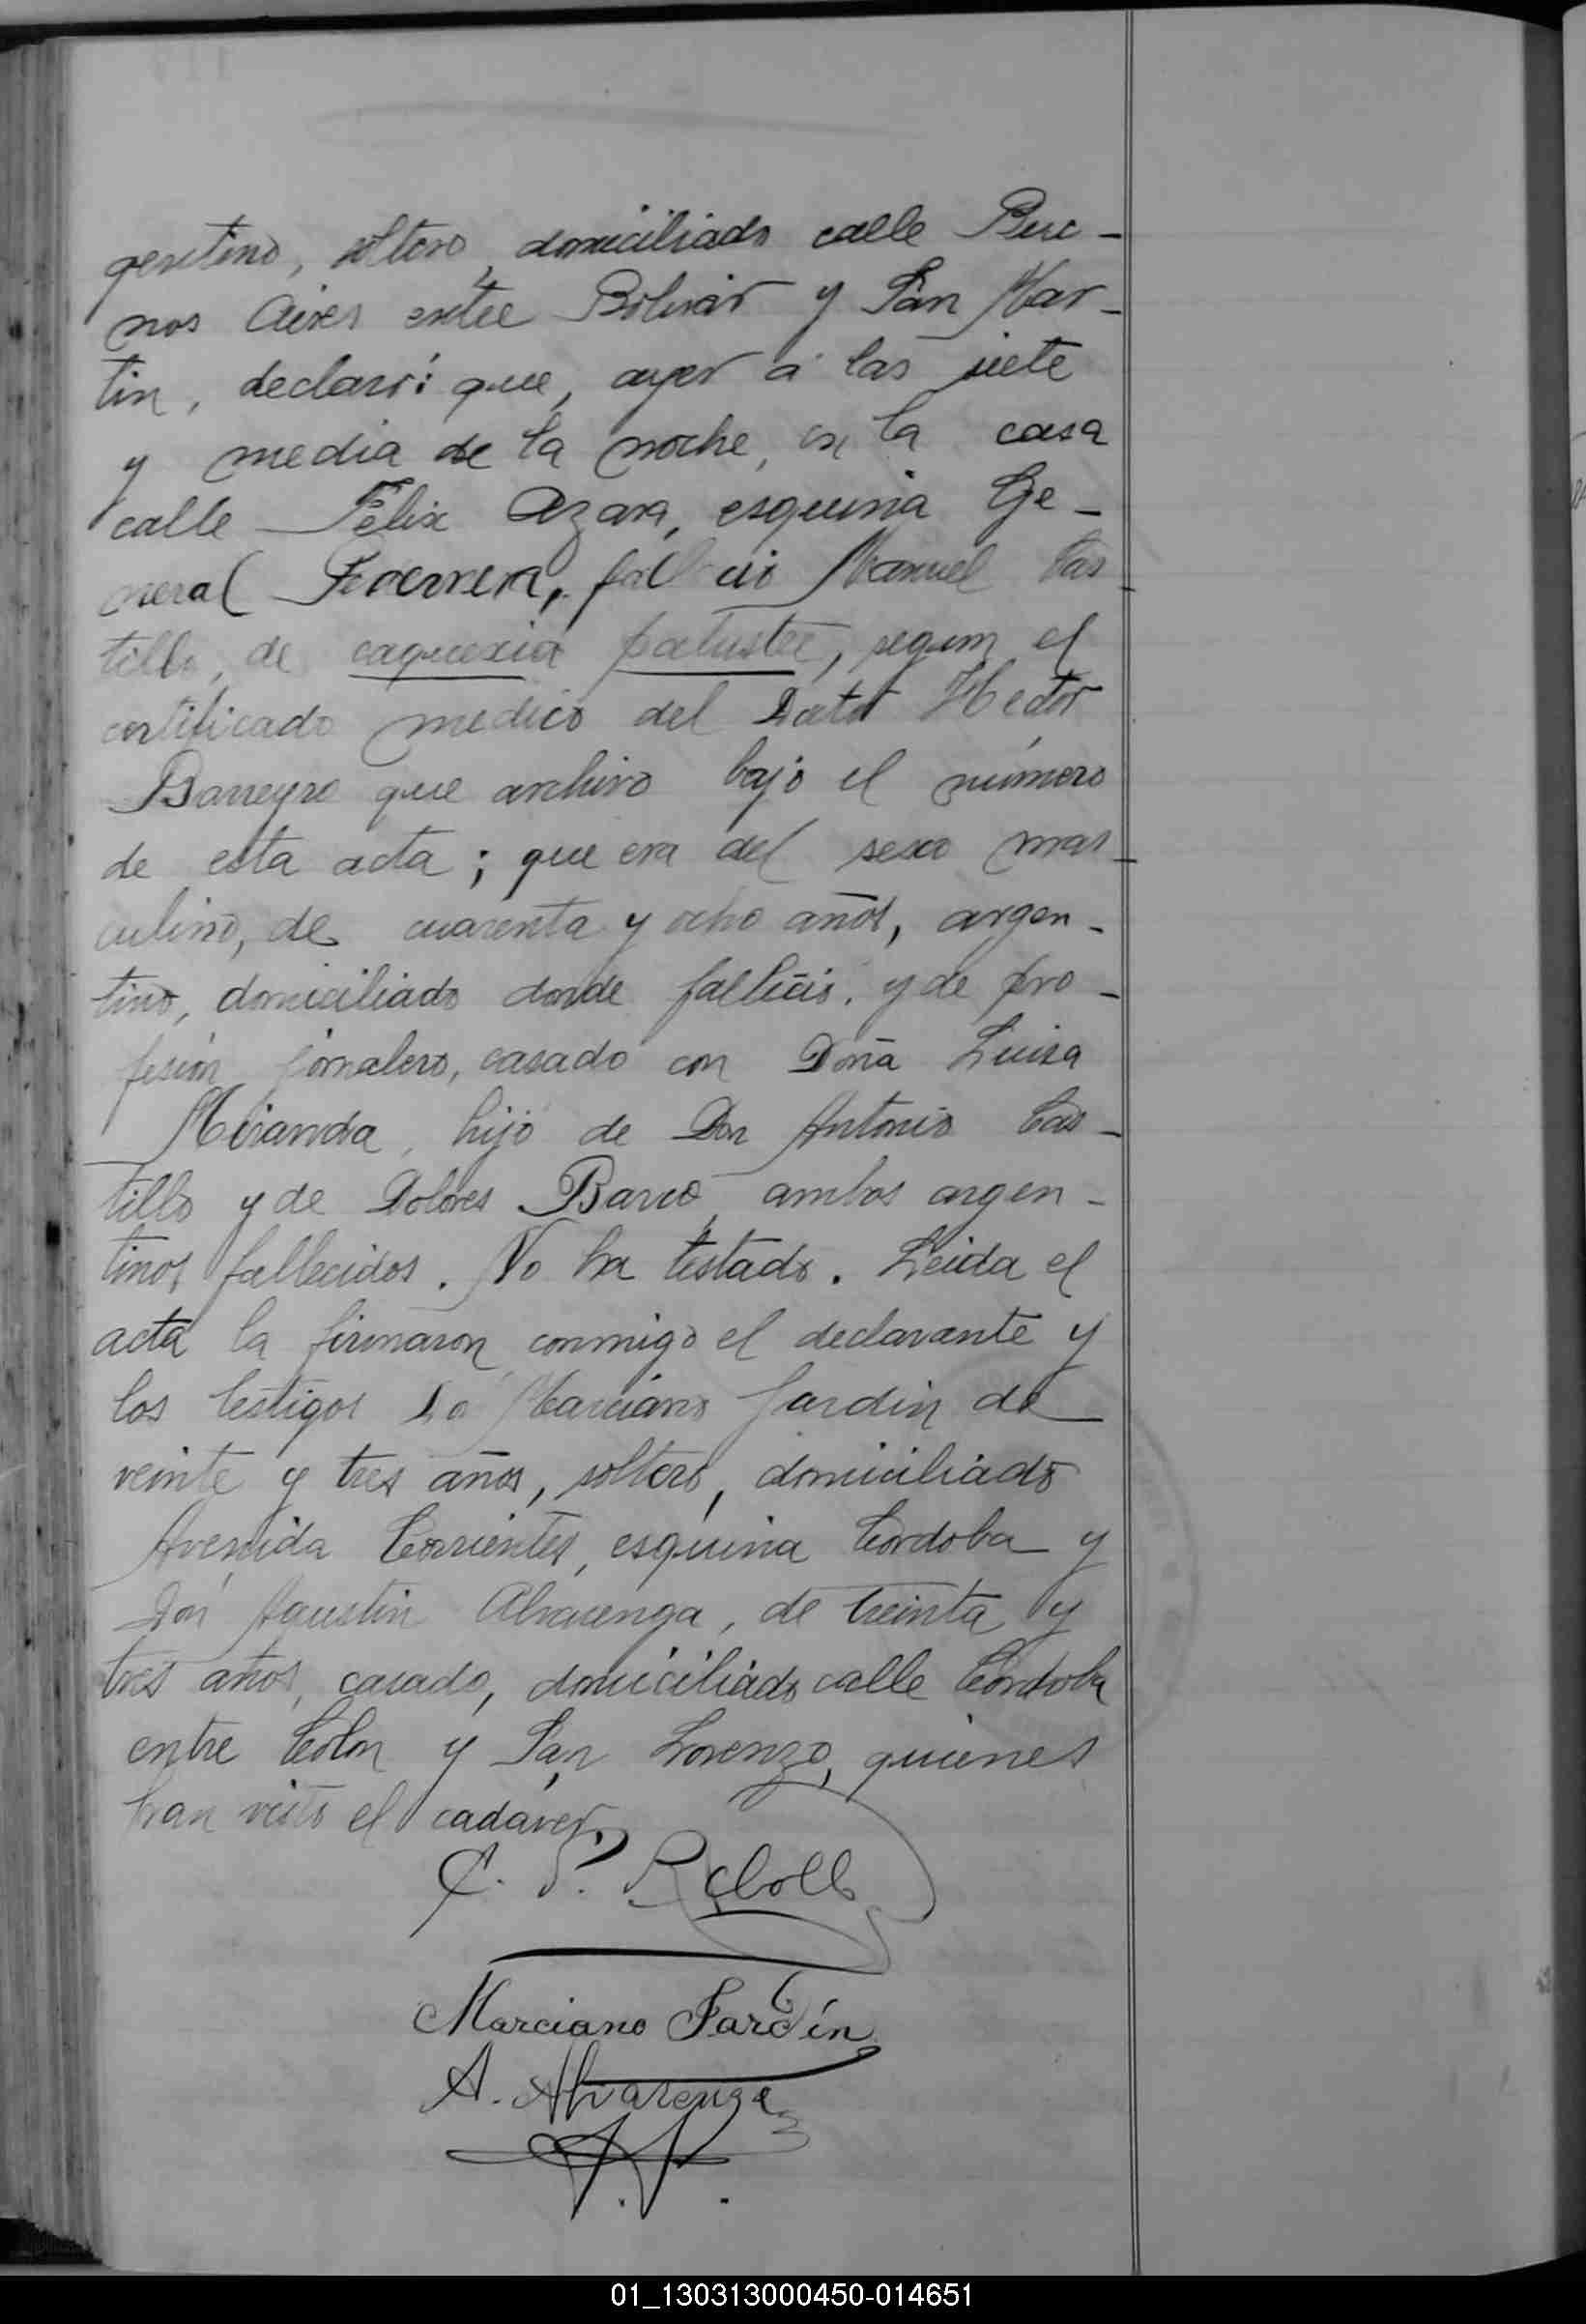 gentino, soltero, domiciliado calle Bue-
nos Aires entre Bolivar y San Mar-
tin, declaró: que, ayer á las siete
y media de la noche, en la casa
calle Felix Azara, esquina Ge-
neral Ferrerra, falleció Manuel Cas-
tillo, de caquexia palustre, segun el
certificado medico del Doctor Hector
Barreyro que archivo bajo el número
de esta acta; que era del sexo mas-
culino, de cuarenta y ocho años, argen-
tino, domiciliado donde falleció, y de pro-
fesión jornalero, casado con Doña Luisa
Miranda, hijo de Don Antonio Cas-
tillo y de Dolores Barco, ambos argen-
tinos fallecidos. No ha testado. Leida el
acta la firmaron conmigo el declarante y
los testigos Don Marciano Jardin de
veinte y tres años, soltero, domiciliado
Avenida Corrientes, esquina Cordoba y
Don Agustin Alvarenga, de treinta y
tres años, casado, domiciliado calle Cordoba
entre Colon y San Lorenzo, quienes
han visto el cadáver.
C. P. Rebollo
Marciano Jardín
A. Alvarenga
01_130313000450-014651